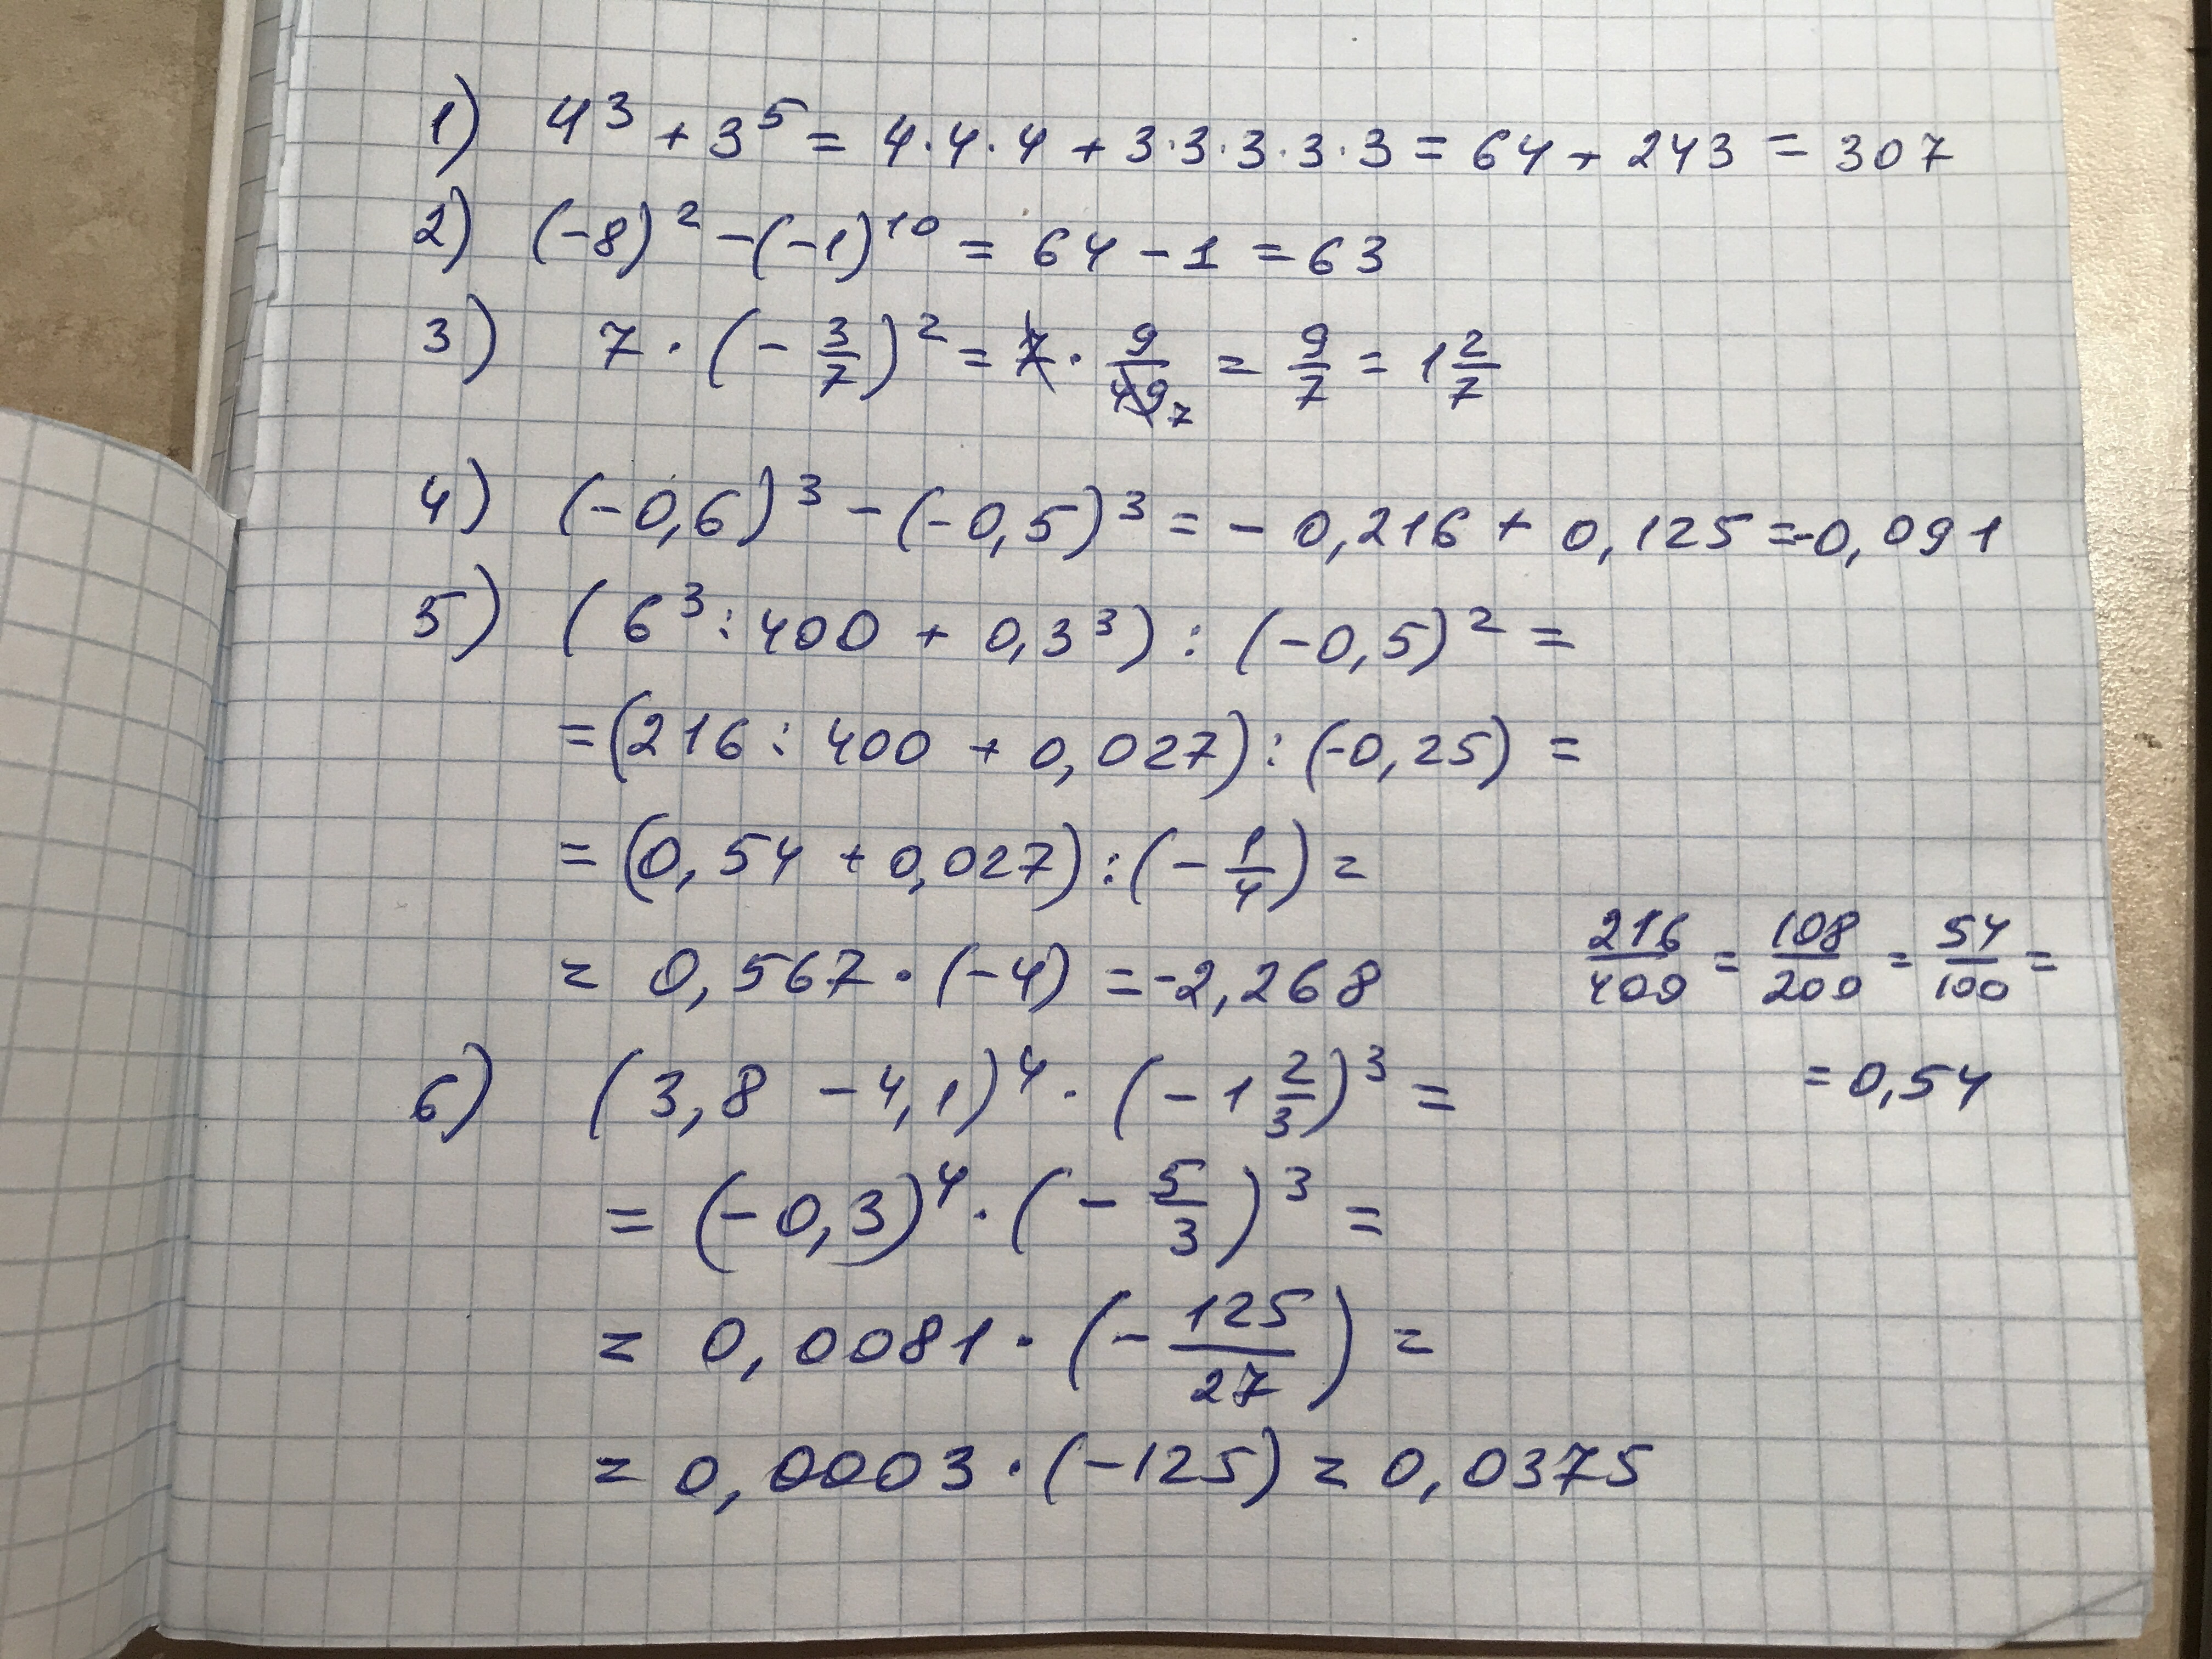 1) 4³ + 3⁵ = 4·4·4 + 3·3·3·3·3 = 64 + 243 = 307
2) (-8)² - (-1)¹⁰ = 64 - 1 = 63
3) 7 · (- 3/7)² = 7 · 9/49 7 = 9/7 = 1 2/7
4) (-0,6)³ - (-0,5)³ = - 0,216 + 0,125 = -0,091
5) (6³ : 400 + 0,3³) : (-0,5)² =
= (216 : 400 + 0,027) : (-0,25) =
= (0,54 + 0,027) : (- 1/4) =
= 0,567 · (-4) = -2,268
216/400 = 108/200 = 54/100 =
= 0,54
6) (3,8 - 4,1)⁴ · (- 1 2/3)³ =
= (-0,3)⁴ · (- 5/3)³ =
= 0,0081 · (- 125/27) =
= 0,0003 · (-125) = 0,0375